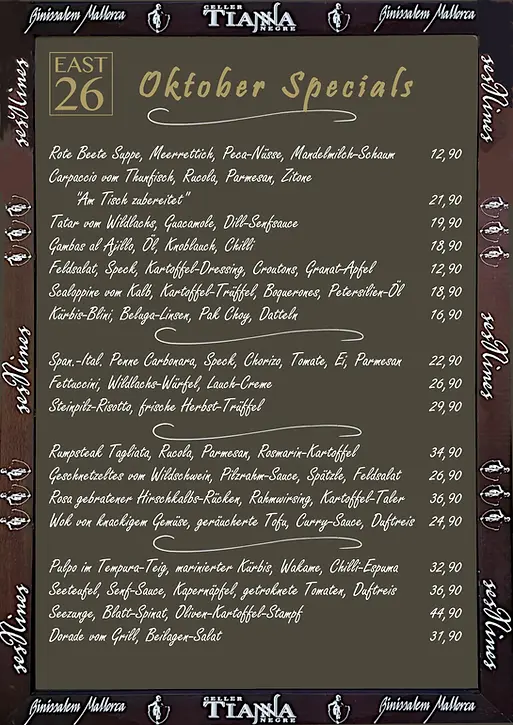 Binissalem Mallorca CELLER TIANNA NEGRE Binissalem Mallorca
EAST
26
Oktober Specials
Rote Beete Suppe, Meerrettich, Peca-Nüsse, Mandelmilch-Schaum 12,90
Carpaccio vom Thunfisch, Rucola, Parmesan, Zitone
"Am Tisch zubereitet" 21,90
Tatar vom Wildlachs, Guacamole, Dill-Senfsauce 19,90
Gambas al Ajillo, Öl, Knoblauch, Chilli 18,90
Feldsalat, Speck, Kartoffel-Dressing, Croutons, Granat-Apfel 12,90
Scaloppine vom Kalb, Kartoffel-Trüffel, Boquerones, Petersilien-Öl 18,90
Kürbis-Blini, Beluga-Linsen, Pak Choy, Datteln 16,90
Span.-Ital. Penne Carbonara, Speck, Chorizo, Tomate, Ei, Parmesan 22,90
Fettuccini, Wildlachs-Würfel, Lauch-Creme 26,90
Steinpilz-Risotto, frische Herbst-Trüffel 29,90
Rumpsteak Tagliata, Rucola, Parmesan, Rosmarin-Kartoffel 34,90
Geschnetzeltes vom Wildschwein, Pilzrahm-Sauce, Spätzle, Feldsalat 26,90
Rosa gebratener Hirschkalbs-Rücken, Rahmwirsing, Kartoffel-Taler 36,90
Wok von knackigem Gemüse, geräucherte Tofu, Curry-Sauce, Duftreis 24,90
Pulpo im Tempura-Teig, marinierter Kürbis, Wakame, Chilli-Espuma 32,90
Seeteufel, Senf-Sauce, Kapernäpfel, getroknete Tomaten, Duftreis 36,90
Seezunge, Blatt-Spinat, Oliven-Kartoffel-Stampf 44,90
Dorade vom Grill, Beilagen-Salat 31,90
sesNines
sesNines
sesNines
sesNines
sesNines
sesNines
Binissalem Mallorca CELLER TIANNA NEGRE Binissalem Mallorca